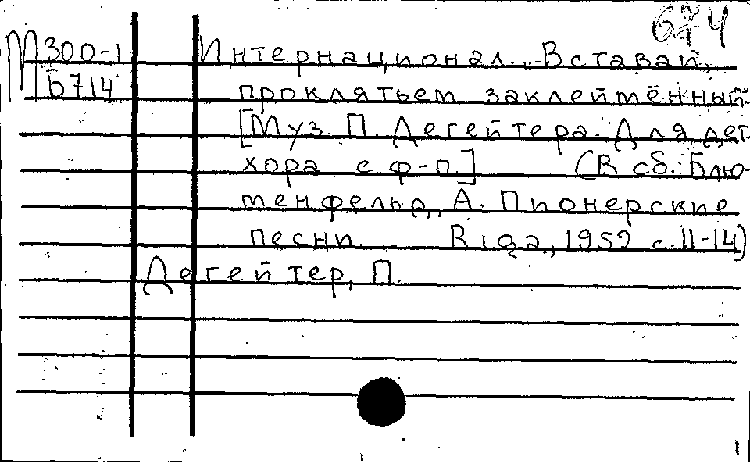 674
М 300-1 Интернационал. „Вставай,
Б714 проклятьем заклеймённый“
[Муз. П. Дегейтера. Для дет.
хора с ф-п.] (В сб.: Блю-
менфельд, А. Пионерские
песни. Riga, 1952 с. 11-14)
Дегейтер, П.